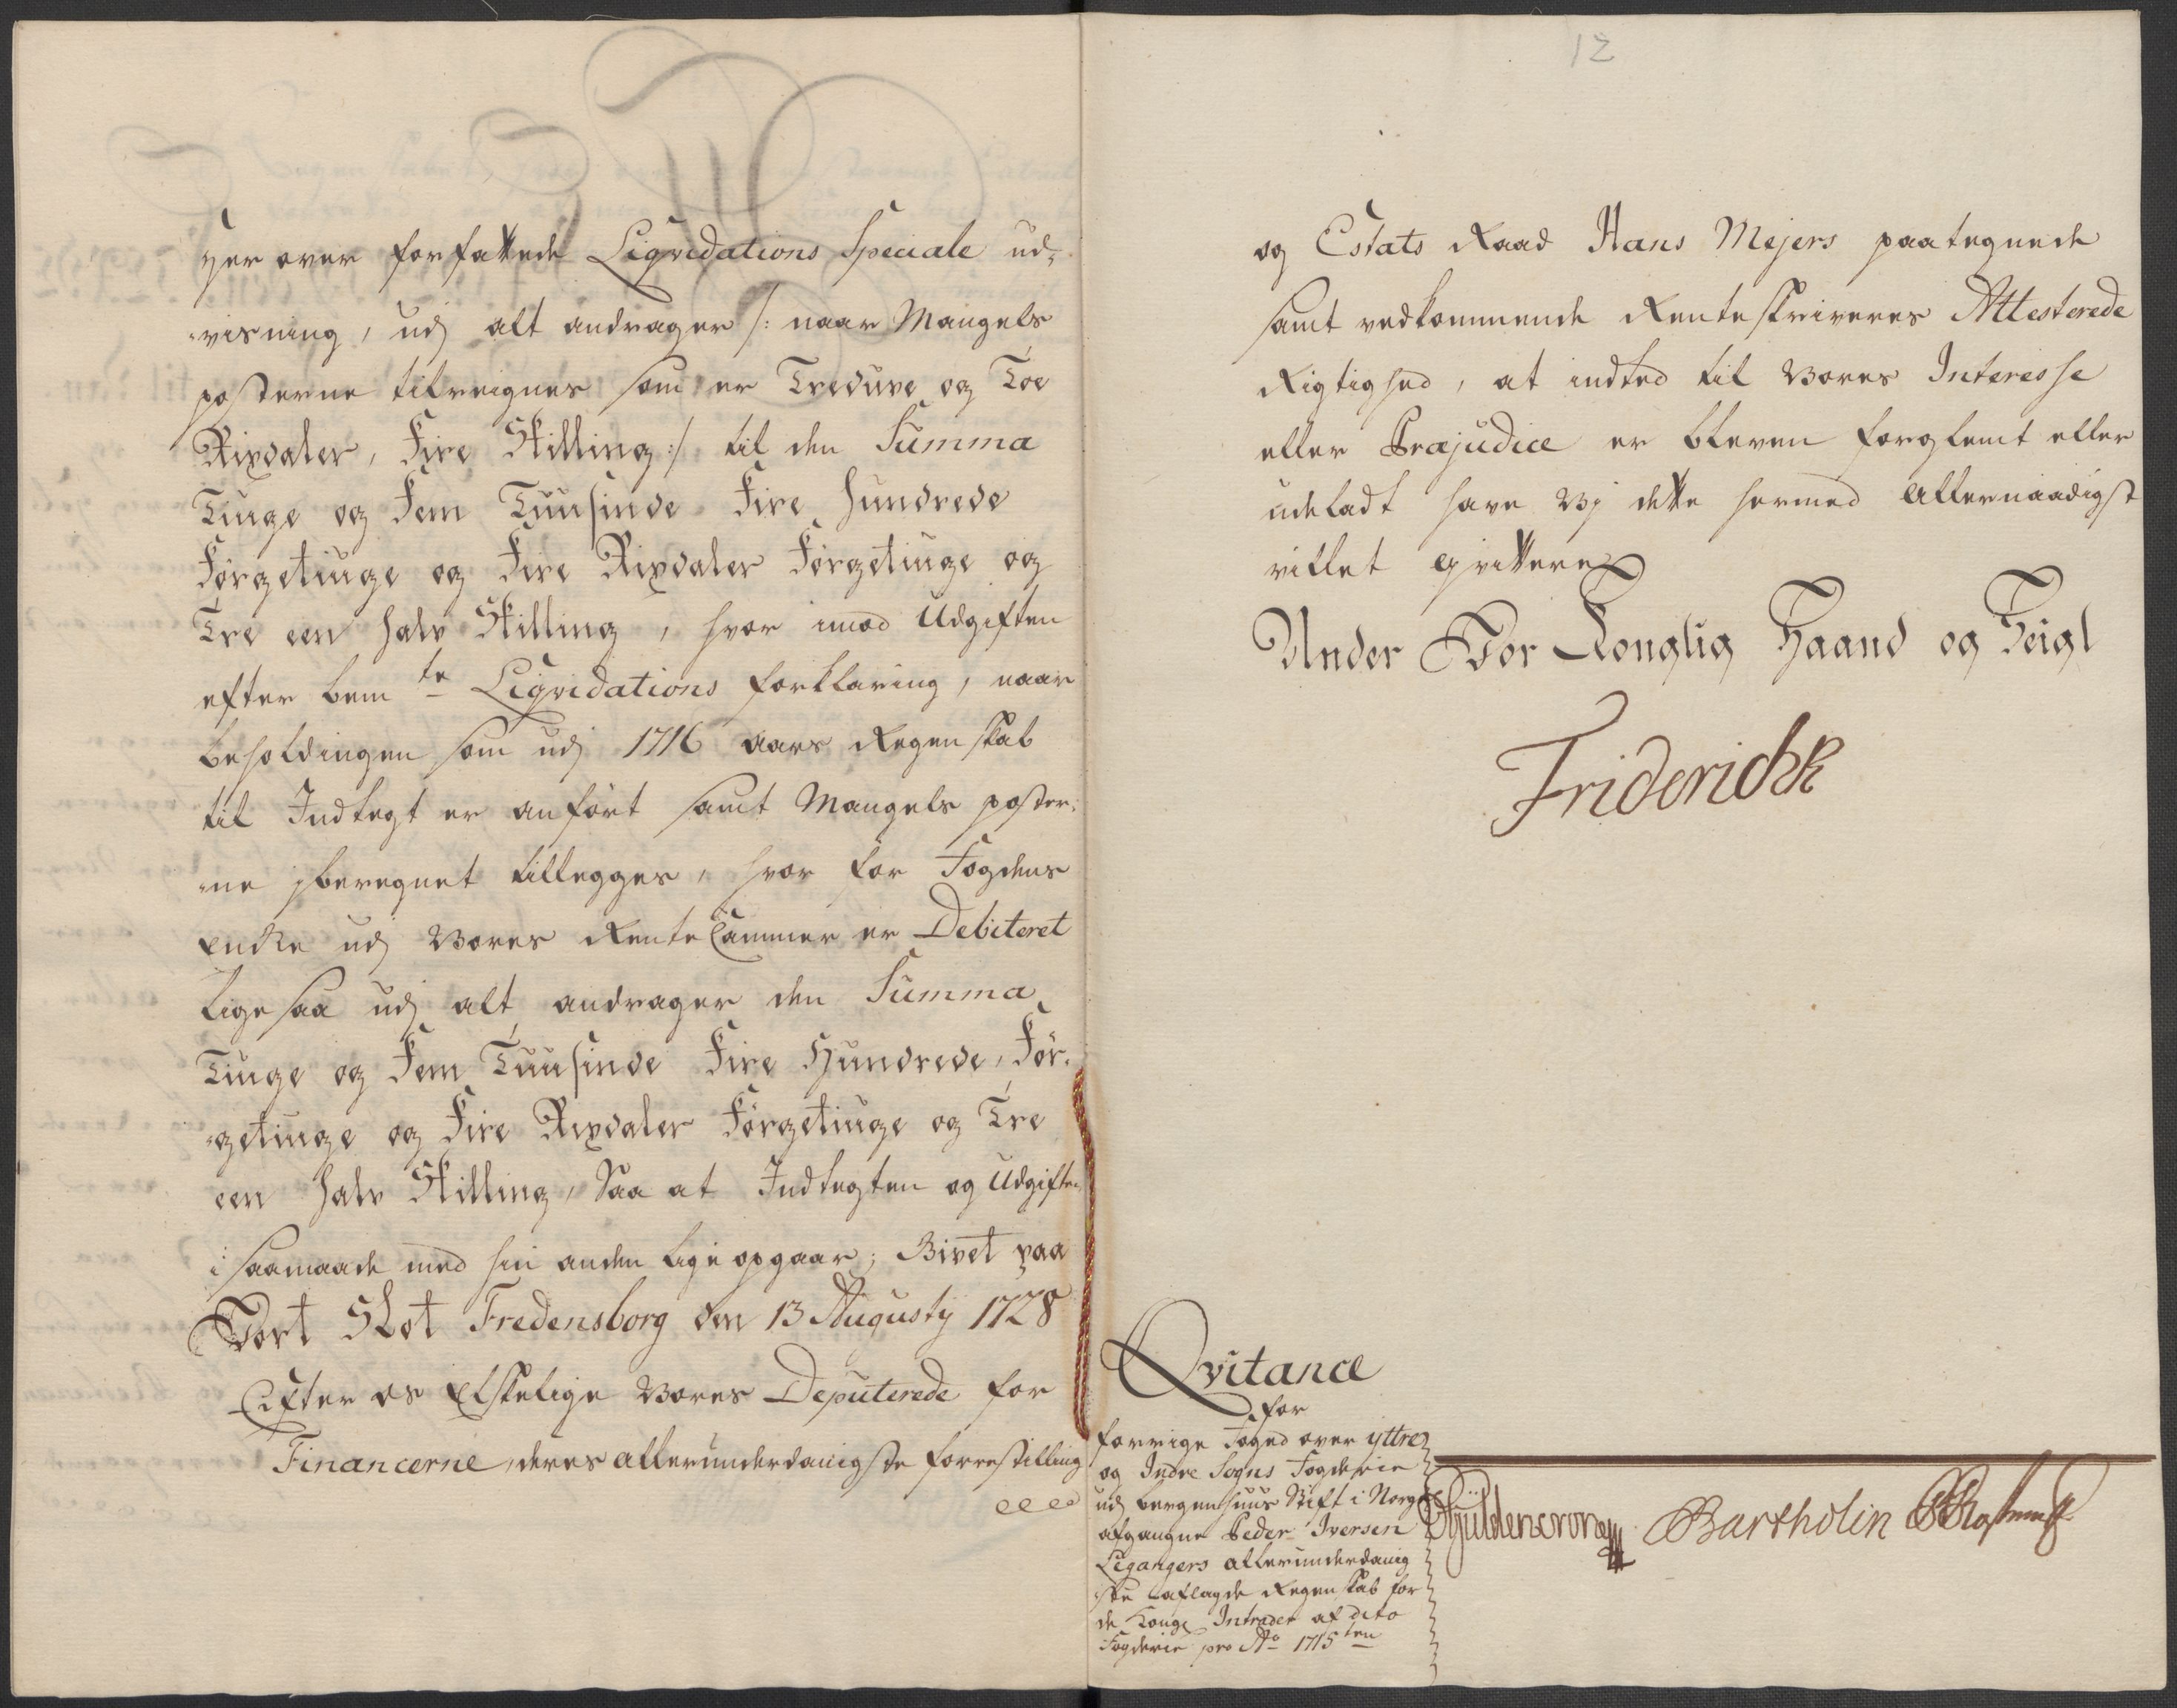 her over forfattede Liqvidations Speciale ud-
visning, udj alt andrager /: naar Mangels
posterne tilreignes som er Treduve og Toe
Rixdaler, Fire Skilling :/ til den Summa
Tiuge og Fem Tuusinde Fire hundrede
Førgetiuge og Fire Rixdaler Førgetiuge og
Tre een halv Skilling, hvor imod Udgiften
efter bemte Liqvidations forklaring, naar
beholdingen som udj 1716 aars Regenskab
til Indtegt er anført samt Mangels poster-
ne iberegnet tillegges, hvor for Fogdens
Encke udj Vores RenteCammer er Debiteret
lige saa udj alt andrager den Summa
Tiuge og Fem Tuusinde Fire Hundrede, Før-
getiuge og Fire Rixdaler Førgetiuge og Tre
een halv Skilling, Saa at Indtegten og Udgiften
i saamaade med hin anden lige opgaar; Givet paa
Vort Slot Fredensborg den 13 Augusty 1728
Efter os Elskelige Vores Deputerede for
Financerne, deres allerunderdanigste forestilling
12
og Estats Raad Hans Mejers paategnede
samt vedkommende Renteskriveres Attesterede
Rigtighed, at indted til Vores Interesse
eller Præjudice er bleven forglemt eller
udeladt have Vj dette hermed Allernaadigst
villet qvittere
Under Vor Konglig Haand og Seigl
FriderichR
Qvitance
for
forrige Foged over yttre
og Indre Sogns Fogderie
udj bergenhuus Stift i Norge
afgangne Peder Iversen
Legangers allerunderdanig
ste aflagde Regenskab for
de Kongl Intrader af dito
Fogderie pro Ao 1715ten
Güldencrone Bartholin